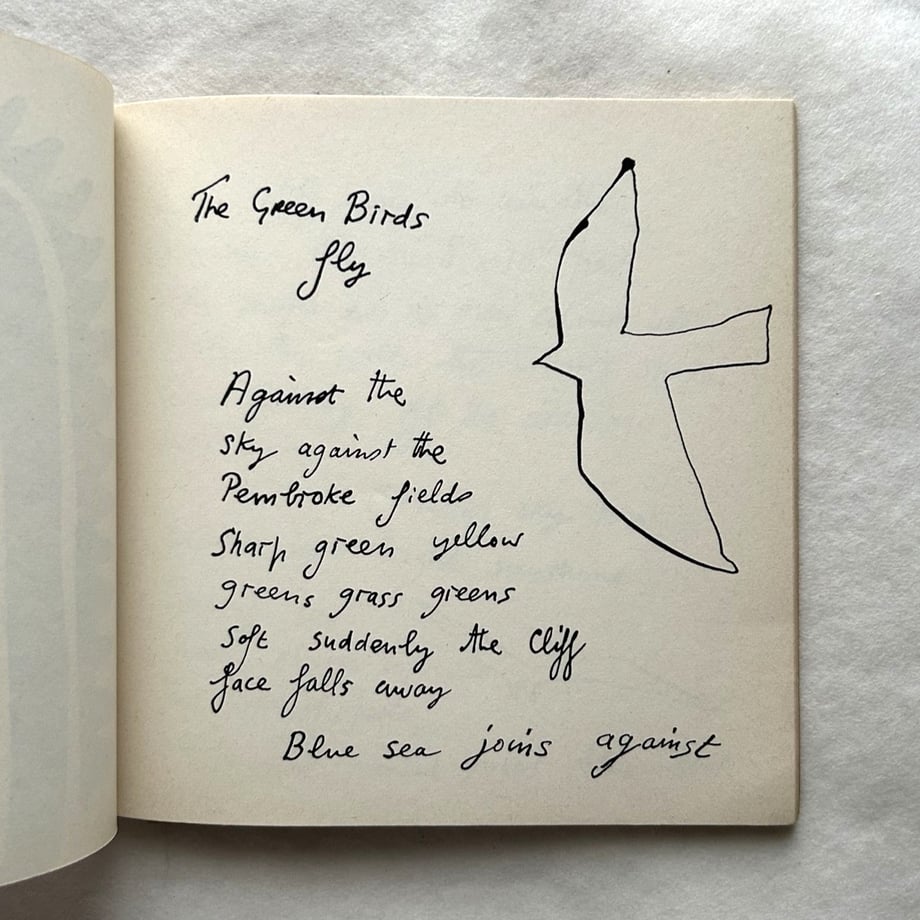 The Green Birds
fly
Against the
sky against the
Pembroke fields
Sharp green yellow
greens grass greens
Soft suddenly the Cliff
face falls away
Blue sea joins against